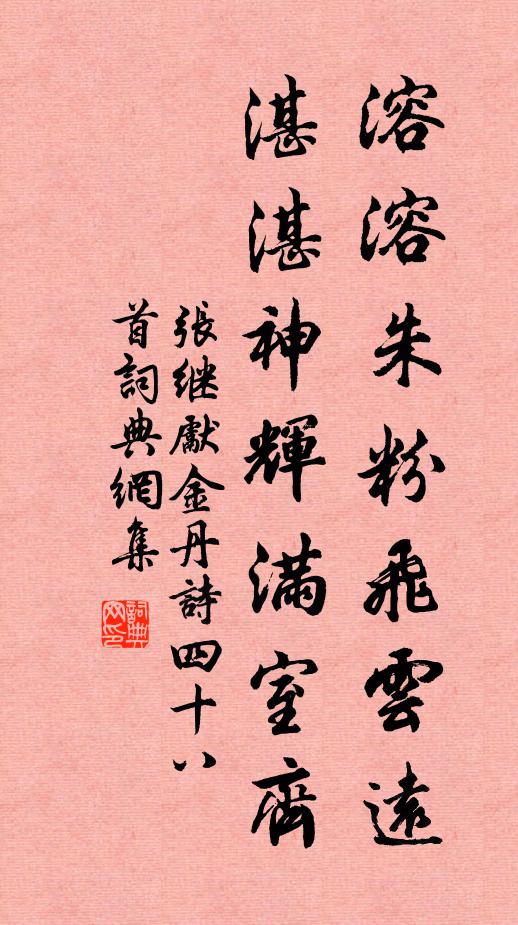 溶溶朱粉飛雲遠
湛湛神輝滿室齊
張继獻金丹詩四十八
首詞典網集
詞典
网印